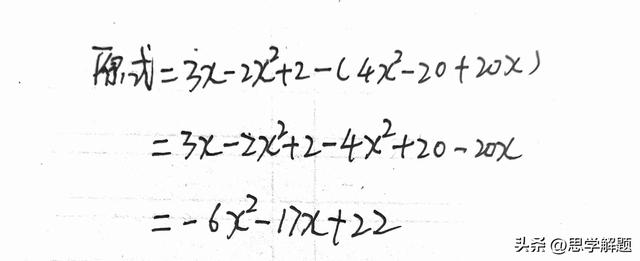 原式=3x-2x²+2-(4x²-20+20x)
=3x-2x²+2-4x²+20-20x
=-6x²-17x+22
头条 @思学解题